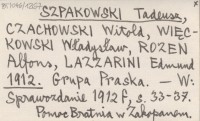 SZPAKOWSKI Tadeusz,
CZACHOWSKI Witold, WIĘC-
KOWSKI Władysław, ROZEN
Alfons, LAZZARINI Edmund
1912. Grupa Praska. — W:
Sprawozdanie 1912 r, s. 33-37.
Pomoc Bratnia w Zakopanem.